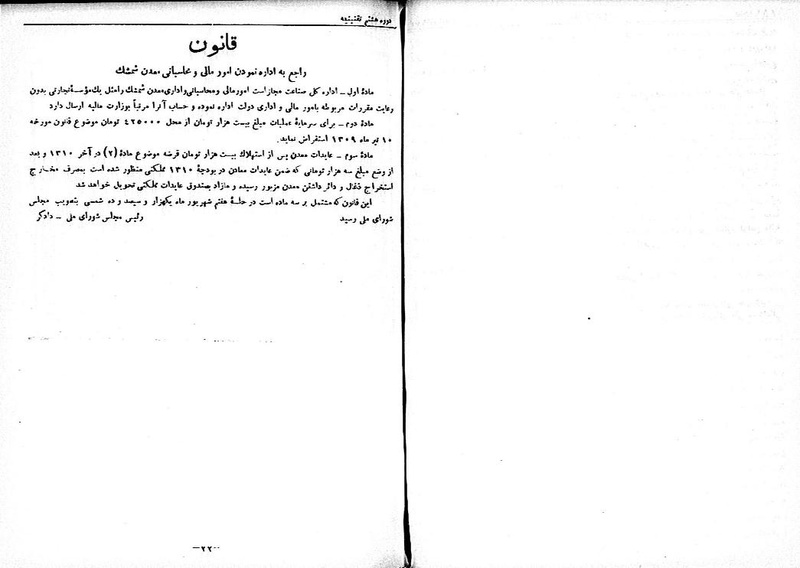 دوره هشتم تقنینیه
قانون
راجع به اداره نمودن امور مالی و محاسباتی معدن شمشك
مادهٔ اول ـ اداره کلی صناعت مجاز است امور مالی و محاسباتی و اداری معدن شمشك را مثل یك مؤسسهٔ تجارتی بدون
رعایت مقررات مربوطه بامور مالی و اداری دولت اداره نموده و حساب آنرا مرتباً بوزارت مالیه ارسال دارد
مادهٔ دوم ـ برای سرمایهٔ عملیات مبلغ بیست هزار تومان از محل ۴۲۵۰۰۰ تومان موضوع قانون مورخه
۱۰ تیر ماه ۱۳۰۹ استقراض نماید.
مادهٔ سوم ـ عایدات معدن پس از استهلاك بیست هزار تومان قرضه موضوع مادهٔ (۲) در آخر ۱۳۱۰ و بعد
از وضع مبلغ سه هزار تومانی که ضمن عایدات معادن در بودجهٔ ۱۳۱۰ مملکتی منظور شده است بمصرف مخارج
استخراج ذغال و دائر داشتن معدن مزبور رسیده و مازاد بصندوق عایدات مملکتی تحویل خواهد شد
این قانون که مشتمل بر سه ماده است در جلسهٔ هفتم شهریور ماه یکهزار و سیصد و ده شمسی بتصویب مجلس
شورای ملی رسید رئیس مجلس شورای ملی ـ دادگر